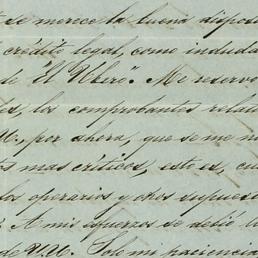 se merece la buena dispos
crédito legal, como induda
de "El Ubero". Me reservo
los comprobantes relat
por ahora, que se me
mas críticos, esto es, cu
los operarios y otros supuest
A mis esfuerzos se debió l
de Ud. Solo mi paciencia